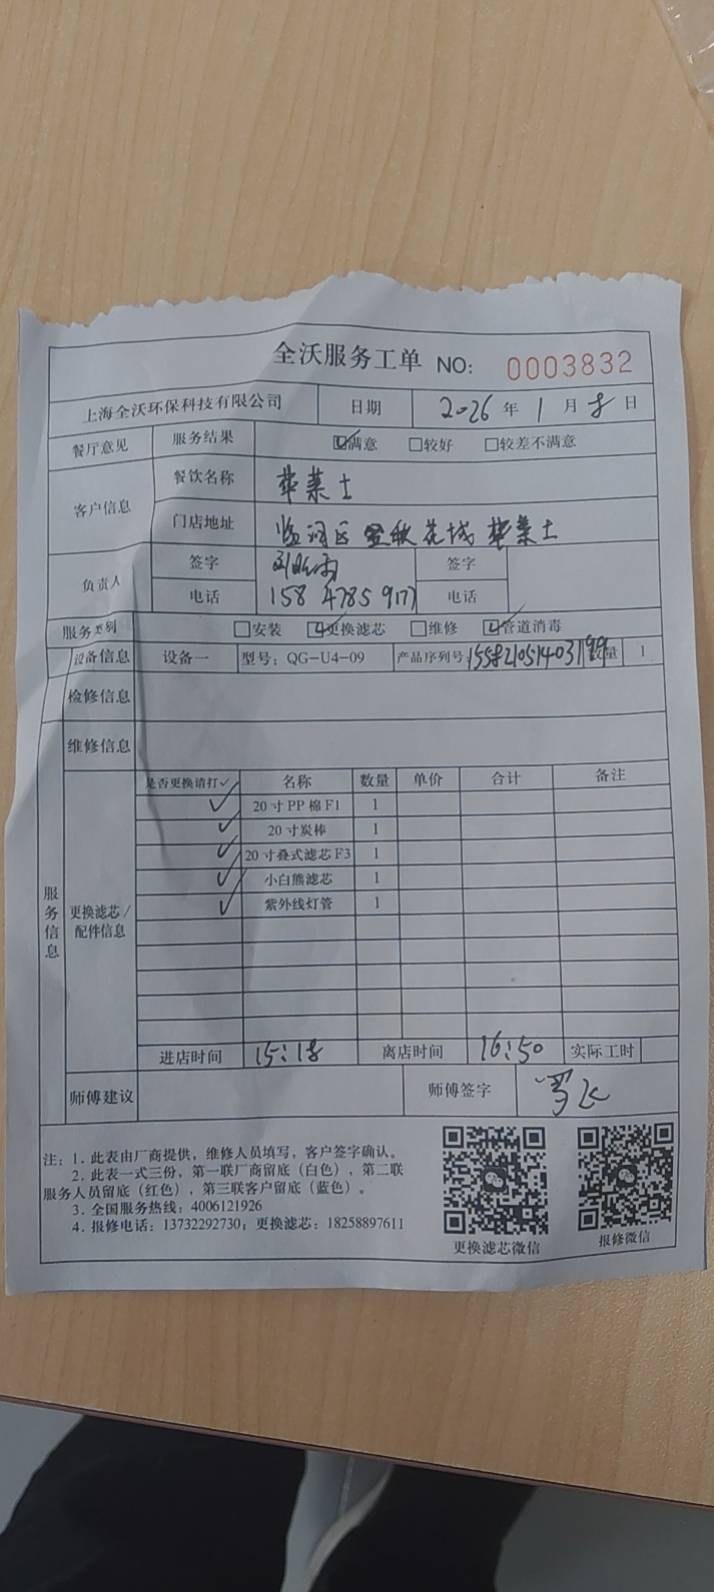 全沃服务工单 NO: 0003832
上海全沃环保科技有限公司 日期 2026 年 1 月 8 日
餐厅意见 服务结果 ☑满意 □较好 □较差不满意
客户信息 餐饮名称 华莱士
门店地址 临河区 金秋花城 华莱士
负责人 签字 签字
电话 158 4785 9177 电话
服务类别 □安装 ☑更换滤芯 □维修 ☑管道消毒
设备信息 设备一 型号: QG-U4-09 产品序列号 数量 1
检修信息
维修信息
服务信息
更换滤芯/配件信息
是否更换请打✓ 名称 数量 单价 合计 备注
✓ 20寸PP棉F1 1
✓ 20寸炭棒 1
✓ 20寸叠式滤芯F3 1
✓ 小白熊滤芯 1
✓ 紫外线灯管 1
进店时间 15:18 离店时间 16:50 实际工时
师傅建议 师傅签字
注: 1. 此表由厂商提供, 维修人员填写, 客户签字确认。
2. 此表一式三份, 第一联厂商留底 (白色), 第二联
服务人员留底 (红色), 第三联客户留底 (蓝色)。
3. 全国服务热线: 4006121926
4. 报修电话: 13732292730; 更换滤芯: 18258897611
更换滤芯微信 报修微信